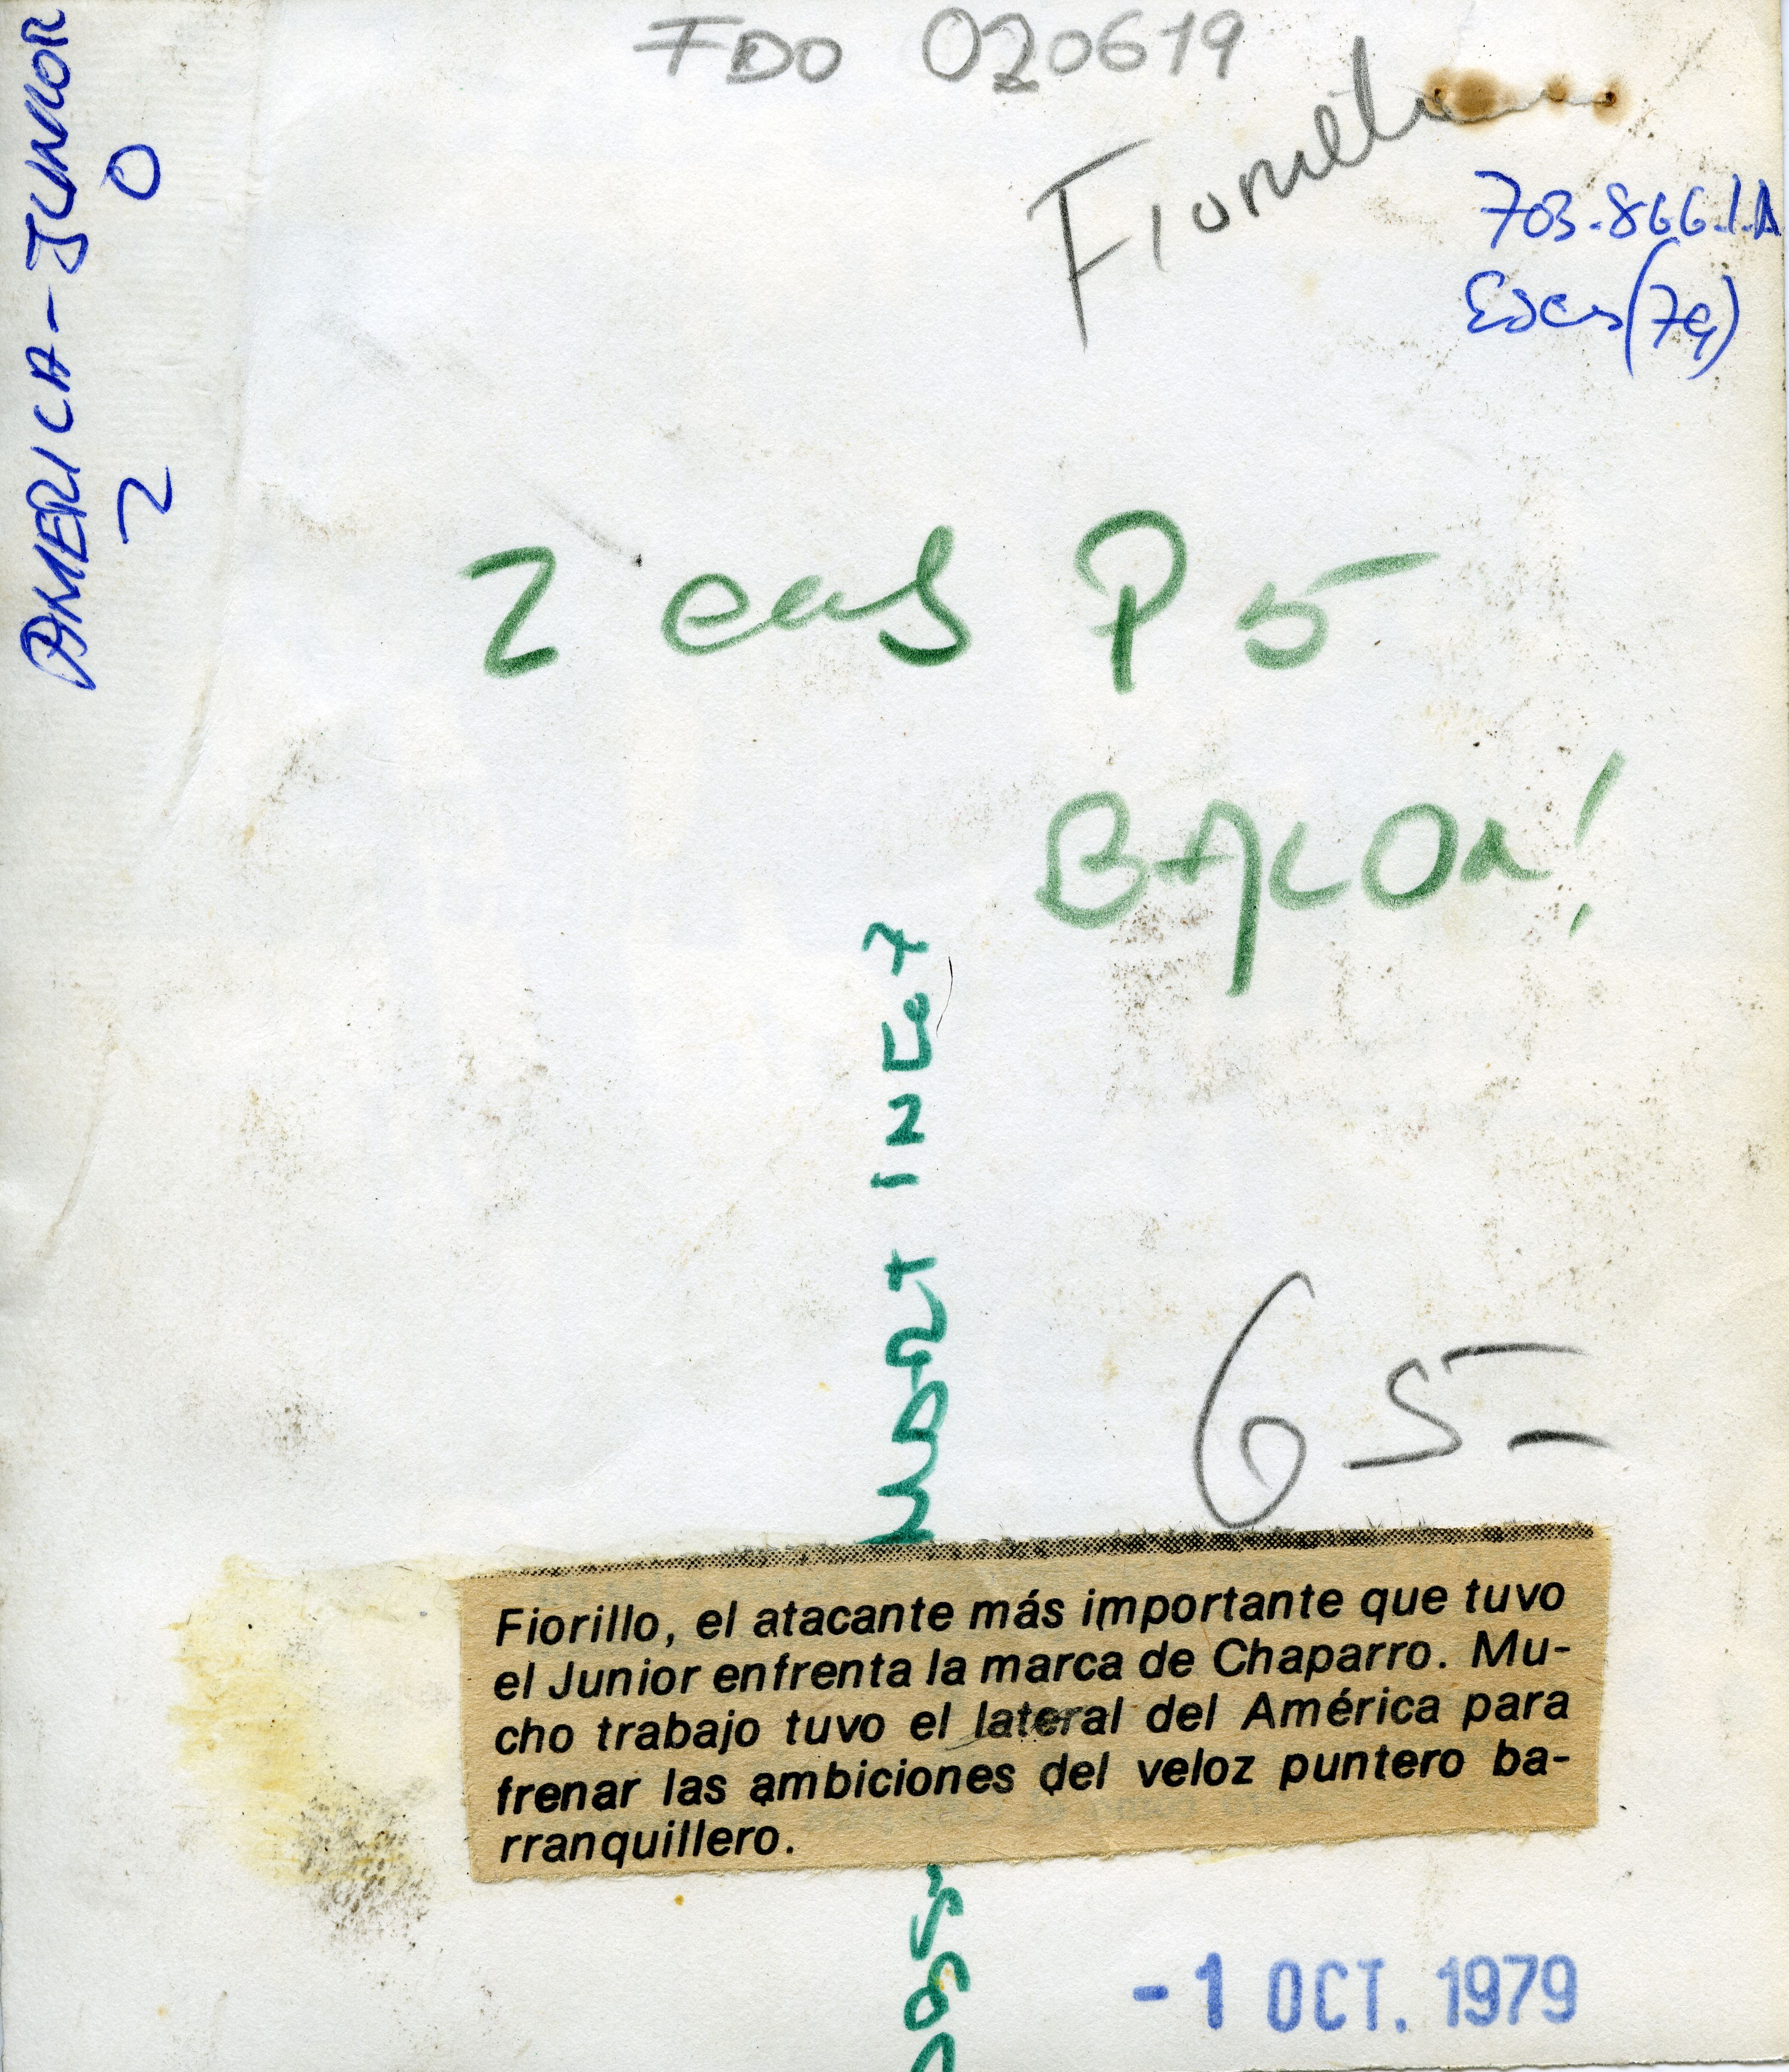 FDO 020619
AMERICA-JUNIOR
2 0
703.866.1.A
2 P 5
65-
Fiorillo, el atacante más importante que tuvo
el Junior enfrenta la marca de Chaparro. Mu-
cho trabajo tuvo el lateral del América para
frenar las ambiciones del veloz puntero ba-
rranquillero.
-1 OCT. 1979